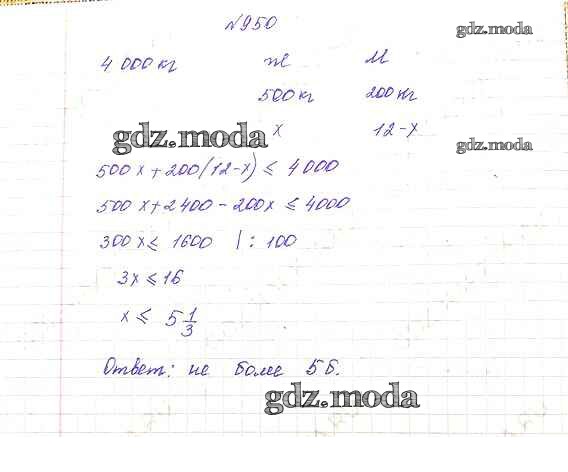 №950
gdz.moda
4 000 кг ж М
500 кг 200 кг
x 12-x
gdz.moda gdz.moda
500x+200(12-x) ≤ 4000
500x+2400-200x ≤ 4000
300x ≤ 1600 | : 100
3x ≤ 16
x ≤ 5 1/3
Ответ: не более 5 б.
gdz.moda